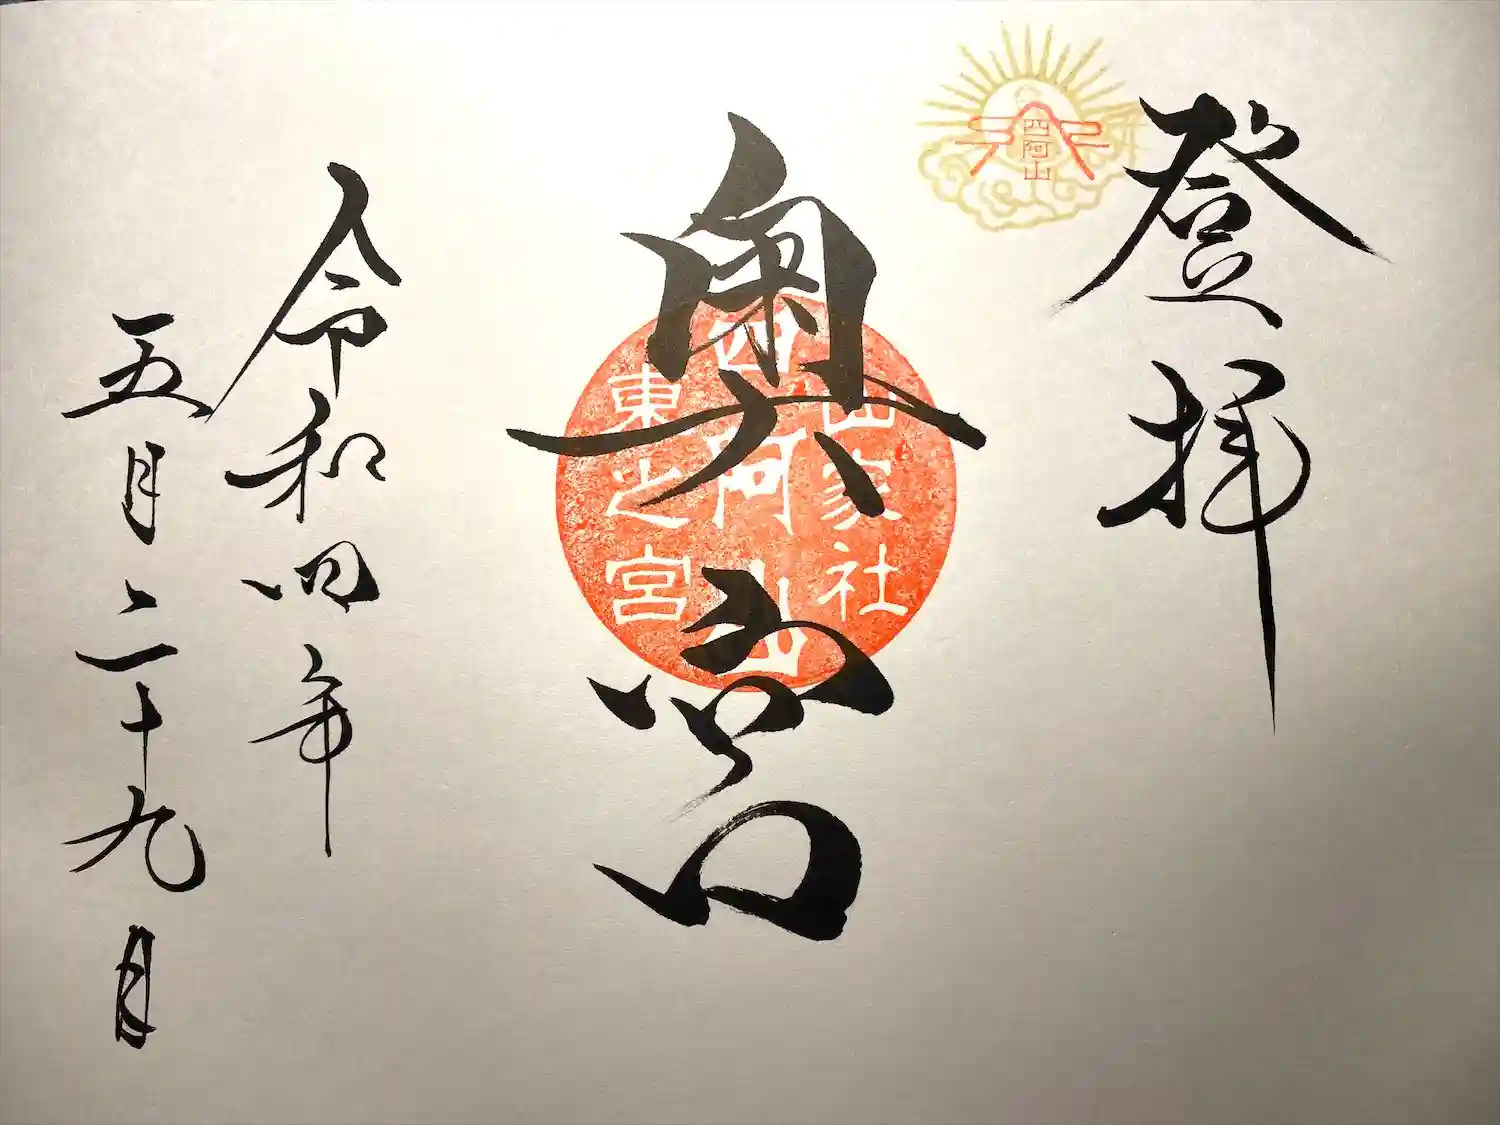 登拝
四阿山
奥宮
山家社
四阿山
東之宮
令和四年
五月二十九日